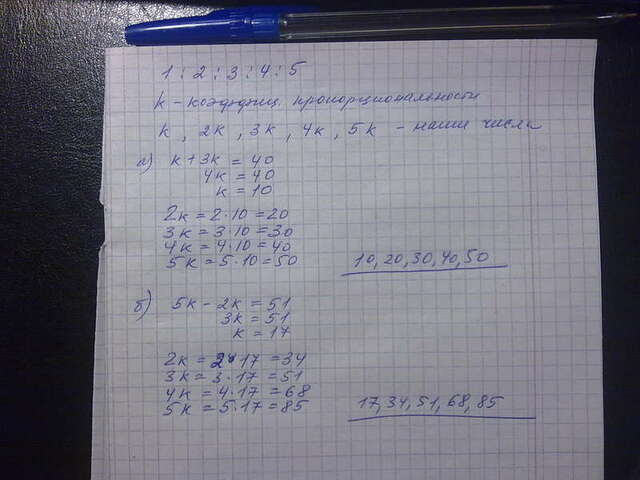 1 : 2 : 3 : 4 : 5
k - коэффиц. пропорциональности
k, 2k, 3k, 4k, 5k - наши числа
а) k + 3k = 40
4k = 40
k = 10
2k = 2·10 = 20
3k = 3·10 = 30
4k = 4·10 = 40
5k = 5·10 = 50
10, 20, 30, 40, 50
б) 5k - 2k = 51
3k = 51
k = 17
2k = 2·17 = 34
3k = 3·17 = 51
4k = 4·17 = 68
5k = 5·17 = 85
17, 34, 51, 68, 85